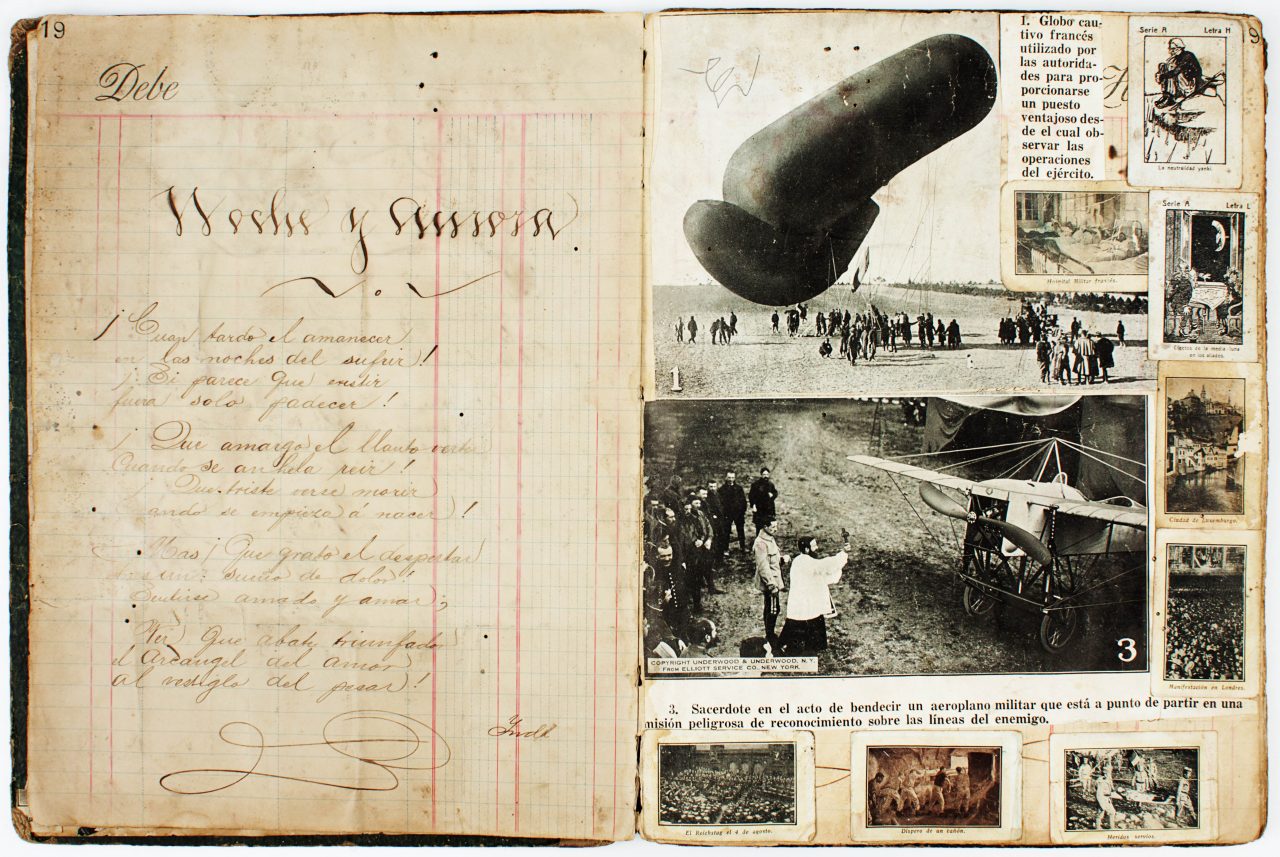 19
Debe
Noche y Aurora
¡Cuan tardo el amanecer
en las noches del sufrir!
¡Si parece que existir
fuera solo padecer!
¡Que amargo el llanto verter
Cuando se anhela reir!
¡Que triste verse morir
ando se empieza á nacer!
Mas ¡Que grato el despertar
un sueño de dolor!
Sentirse amado y amar;
Ver que abate triunfador
el Arcangel del amor
al vestiglo del pesar!
1. Globo cau-
tivo francés
utilizado por
las autorida-
des para pro-
porcionarse
un puesto
ventajoso des-
de el cual ob-
servar las
operaciones
del ejército.
1
Serie A Letra H
9
H
La neutralidad yanki.
Hospital Militar francés.
Serie A Letra L
Efectos de la media luna
en los aliados.
Ciudad de Luxemburgo.
Manifestación en Londres.
COPYRIGHT UNDERWOOD & UNDERWOOD, N. Y.
FROM ELLIOTT SERVICE CO. NEW YORK.
3
3. Sacerdote en el acto de bendecir un aeroplano militar que está a punto de partir en una
misión peligrosa de reconocimiento sobre las líneas del enemigo.
El Reichstag el 4 de agosto.
Disparo de un cañón.
Heridos servios.